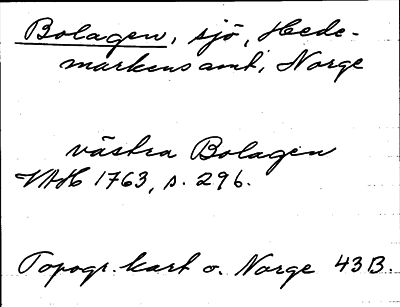 Bolagen, sjö, Hede-
markens amt, Norge
västra Bolagen
VAH 1763, s. 296.
Topogr. kart o. Norge 43B.